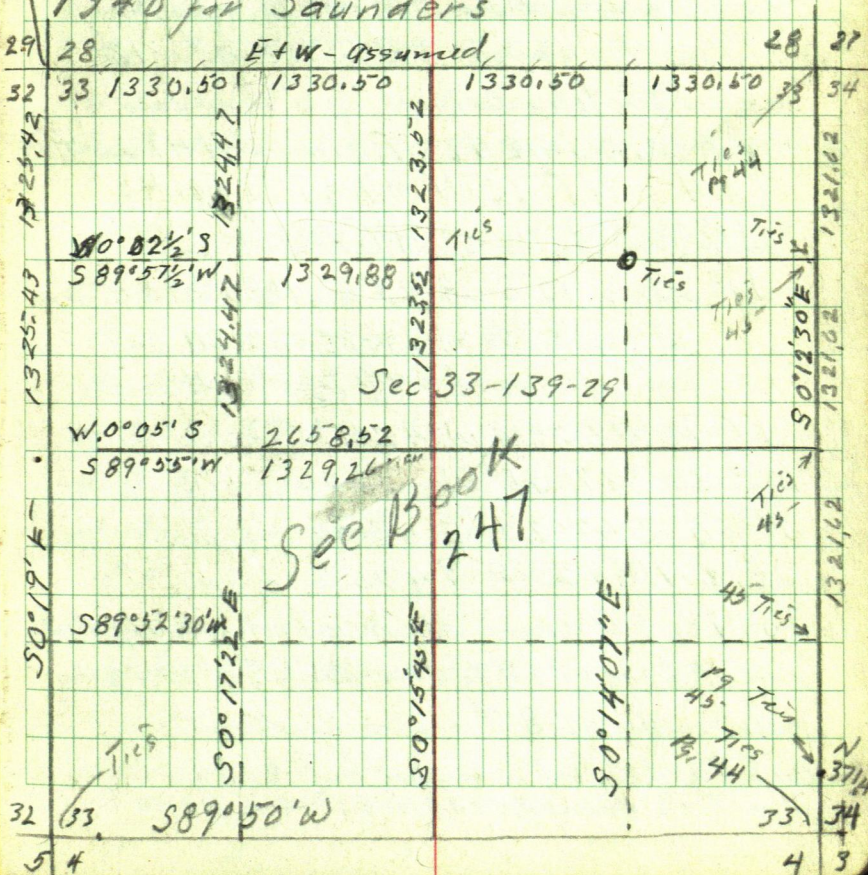 1940 for Saunders
29 28 E+W - assumed 28 27
32 33 1330.50 1330.50 1330.50 1330.50 33 34
1325.42
1324.47
1323.52
Ties
pg 44
1321.62
W 0° 02½' S
Ties
Ties
S 89° 57½' W 1329.88
Ties
Ties
45
1325.43
1324.47
1323.52
S 0° 12' 30" E
1321.62
Sec 33-139-29
W. 0° 05' S 2658.52
S 89° 55' W 1329.26
See Book
247
Ties
45
1321.62
S 0° 19' E
45 Ties
S 89° 52' 30" W
S 0° 17' 22" E
S 0° 15' 45" E
S 0° 14' 07" E
pg Ties
45
Ties
Pg. 44
Ties
N
32 33 S 89° 50' W 33 34
5 4 4 3